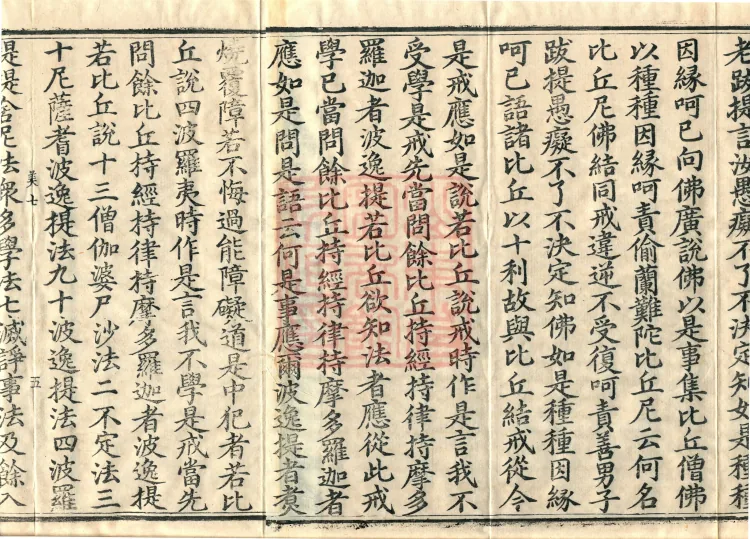 老跋提言汝愚癡不了不決定知如是種種
因緣呵已向佛廣說佛以是事集比丘僧佛
以種種因緣呵責偷蘭難陀比丘尼云何名
比丘尼佛結同戒違逆不受復呵責善男子
跋提愚癡不了不決定知佛如是種種因緣
呵已語諸比丘以十利故與比丘結戒從今
是戒應如是說若比丘說戒時作是言我不
受學是戒先當問餘比丘持經持律持摩多
羅迦者波逸提若比丘欲知法者應從此戒
學已當問餘比丘持經持律持摩多羅迦者
應如是問是語云何是事應爾波逸提者煑
燒覆障若不悔過能障礙道是中犯者若比
丘說四波羅夷時作是言我不學是戒當先
問餘比丘持經持律持摩多羅迦者波逸提
若比丘說十三僧伽婆尸沙法二不定法三
十尼薩耆波逸提法九十波逸提法四波羅
提提舍尼法衆多學法七滅諍事法及餘入
五